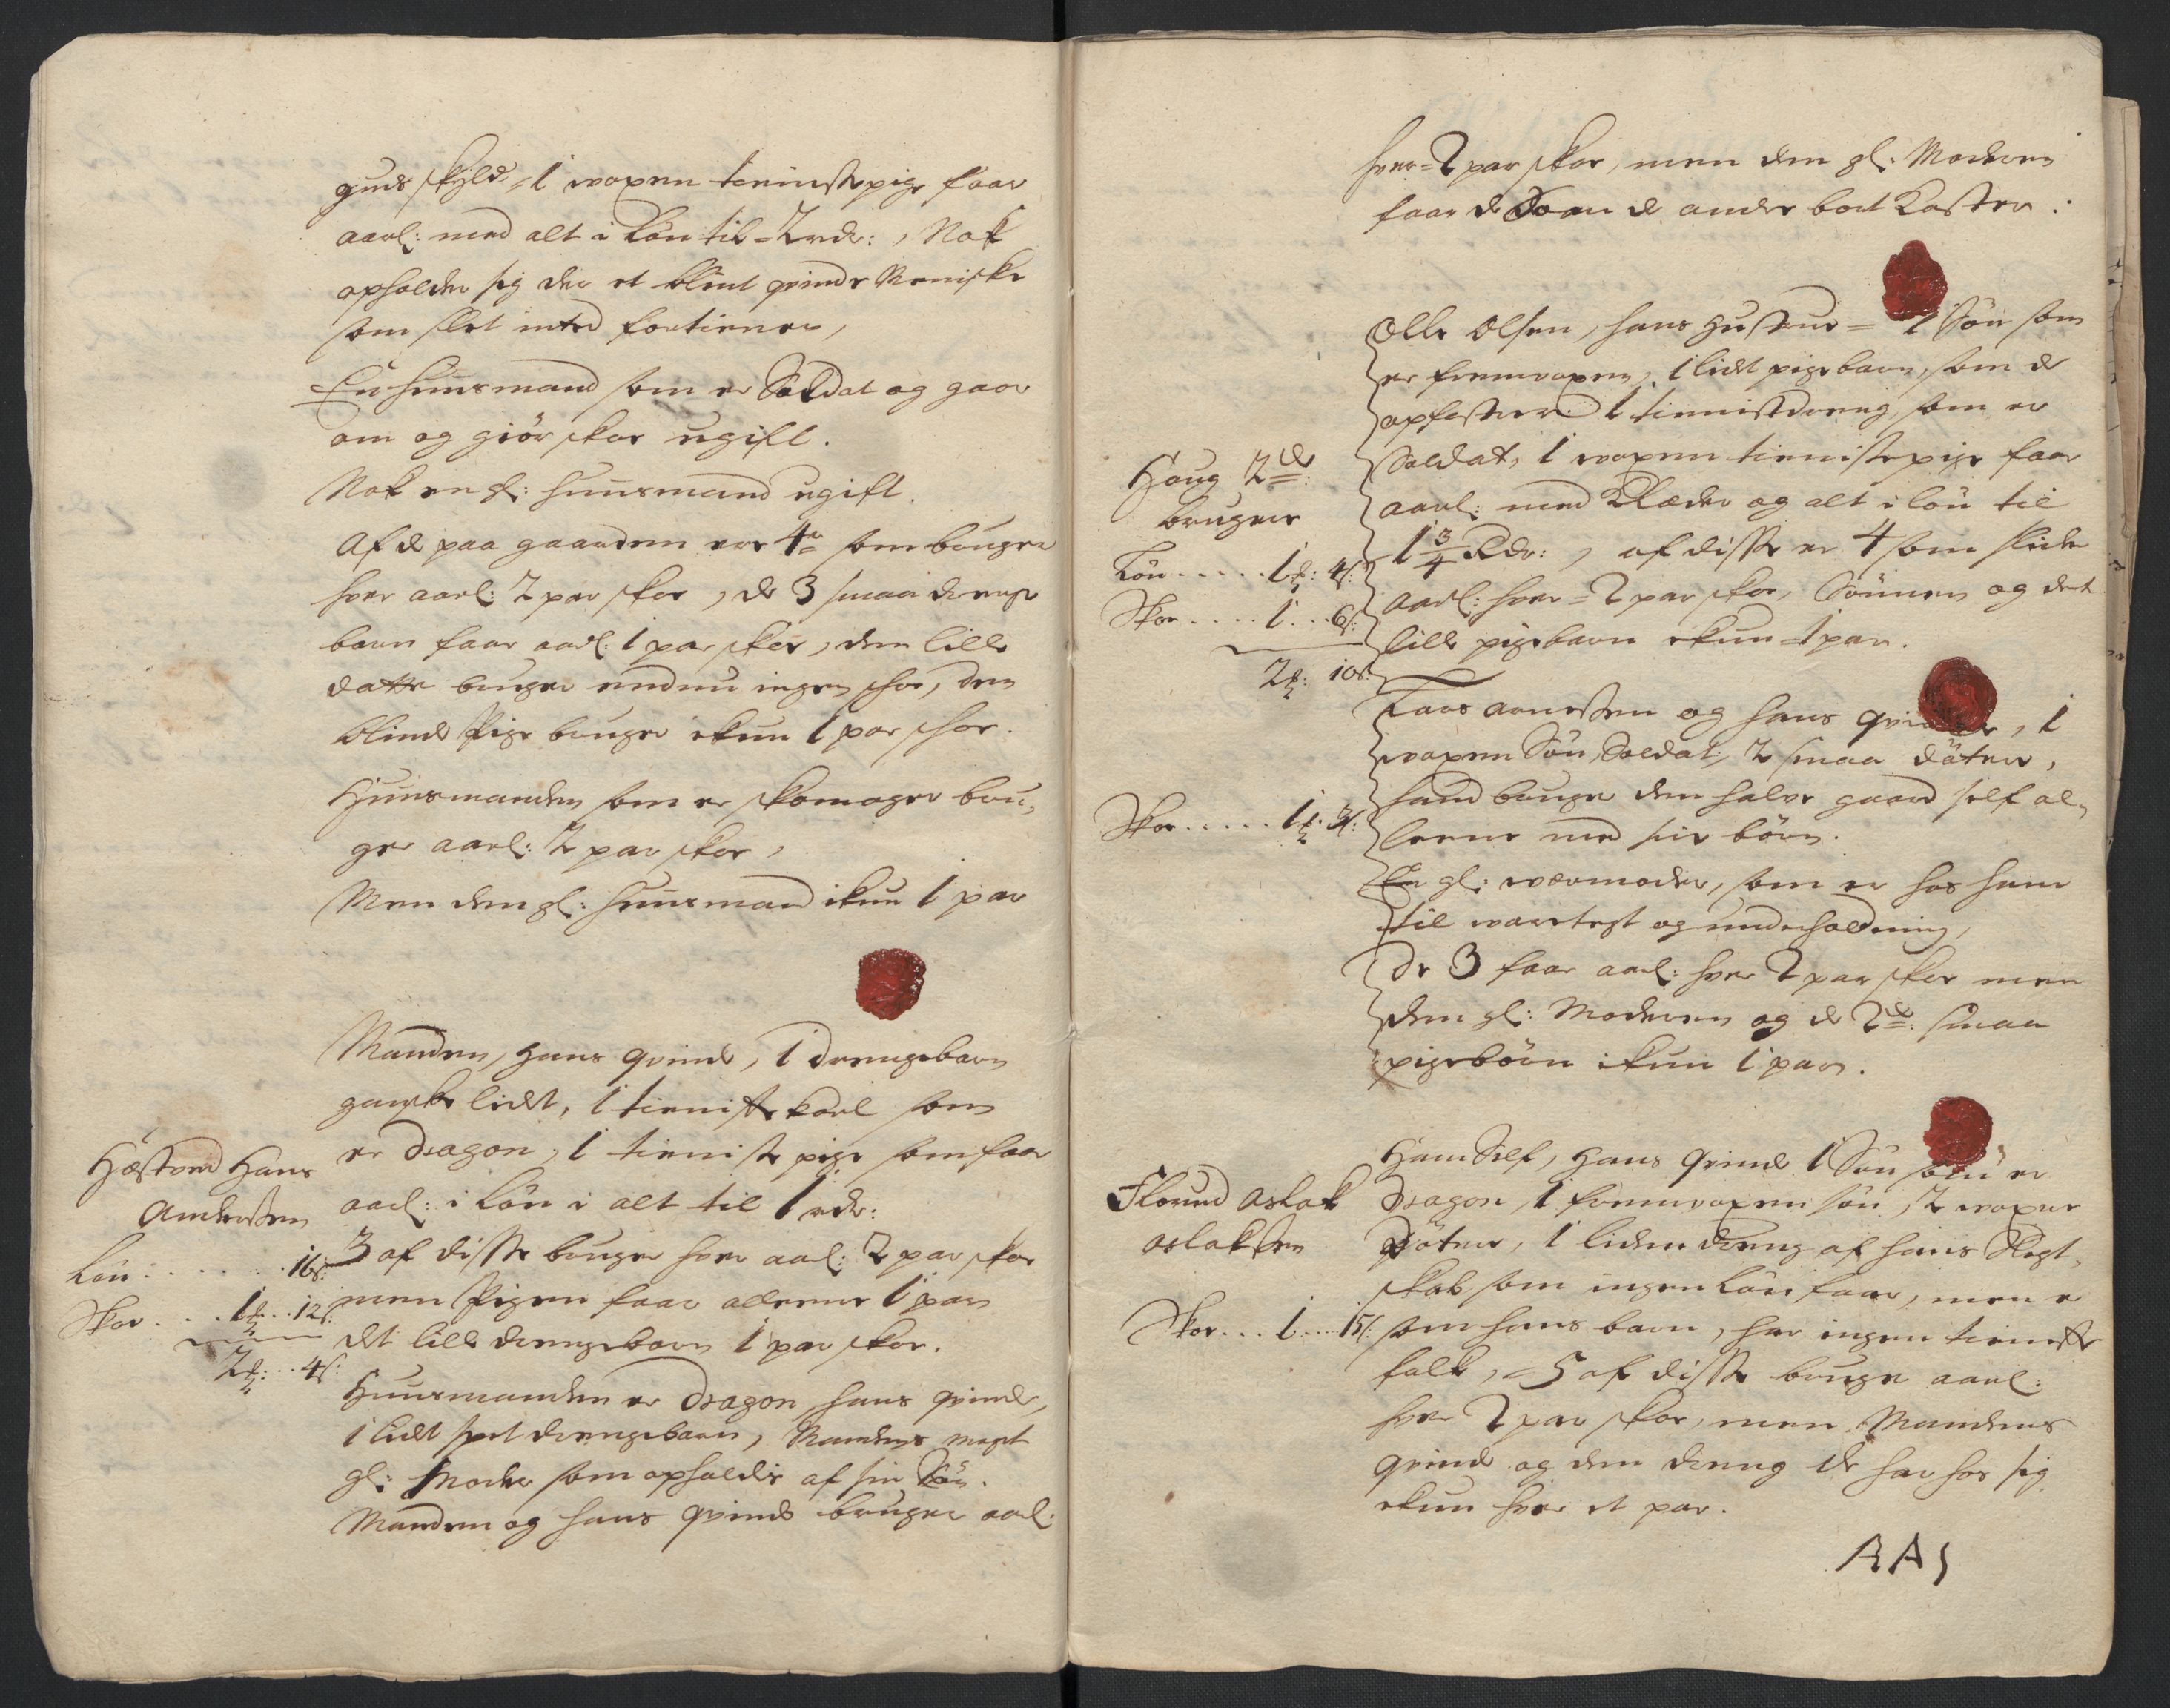 guds skyld, 1 woxen tienniste pige faar
aarl: med alt i Lön til 2 rdr:, Nok
opholder sig der et blint qvinde Meniske
som slet inted fortienner,
En huusmand som er Soldat og gaar
om og giör skoe ugift.
Nok en gl: huusmand ugift.
Af de paa gaarden ere 4re som bruger
hver aarl: 2 par skoe, de 3 smaa drenge
barn faar aarl: 1 par skoe, den lille
datter bruger endnu ingen skoe, den
blinde Pige bruger ikun 1 par skoe.
Huusmanden som er skomager bru,
ger aarl: 2 par skoe,
Men den gl: huusmand ikun 1 par
Hæstved Hans
Andersen
Lön . . . . . . 16s:
Skoe . . . 1d. . 12s:
2d: . . 4s:
Manden, Hans qvinde, 1 drengebarn
ganske lidet, 1 tienniste karl som
er Dragon, 1 tienniste pige som faar
aarl: i Lön i alt til 1 rdr:
3 af disse bruger hver aarl: 2 par skoe
men Pigen faar allene 1 par
det lille drengebarn 1 par skoe.
Huusmanden er Dragon, hans qvinde,
1 lidet spet drengebarn, Mandens megt
gl: Moder som opholdes af sin Sön.
Manden og hans qvinde bruger aarl:
hver 2 par skoe, men den gl: Moderen
faar de Skoe de andre bort Kaster:
Haug 2de:
brugere
Lön . . . . . 1d: 4s:
Skoe . . . . 1 . . 6s:
2d: 10s:
Olle Olsen, hans Hustrue 1 Sön som
er fremvoxen, 1 lidet pigebarn, som de
opfostrer 1 tiennistdreng, som er
Soldat, 1 woxen tienniste pige faar
aarl: med Klæder og alt i lön til
1 3/4 Rdr:, af disse er 4 som slider
aarl: hver 2 par skoe, Sönnen og det
lille pigebarn ikun 1 par.
Skoe . . . . . 1d. 3s:
Lars arnessen og hans qvinde, 1
woxen Sön, Soldat, 2 smaa döttre,
hand bruger den halve gaard self al,
leene med sine börn.
En gl: værmoder, som er hos ham
til waretegt og underholdning,
De 3 faar aarl: hver 2 par skoe men
den gl: Moderen og de 2de: smaa
pigebörn ikun 1 par.
Florund Aslak
aslaksen
Skoe . . . 1 . . . 15s:
Ham Self, Hans Qvinde 1 Sön som er
Dragon, 1 fremvoxen sön, 2 woxne
Döttre, 1 liden dreng af hans Slegt,
skab som ingen Lön faar, men er
som hans barn, har ingen tienniste
folk, 5 af disse bruger aarl:
hver 2 par skoe, men Mandens
qvinde og den dreng de har hos sig
ikun hver et par.
AAS